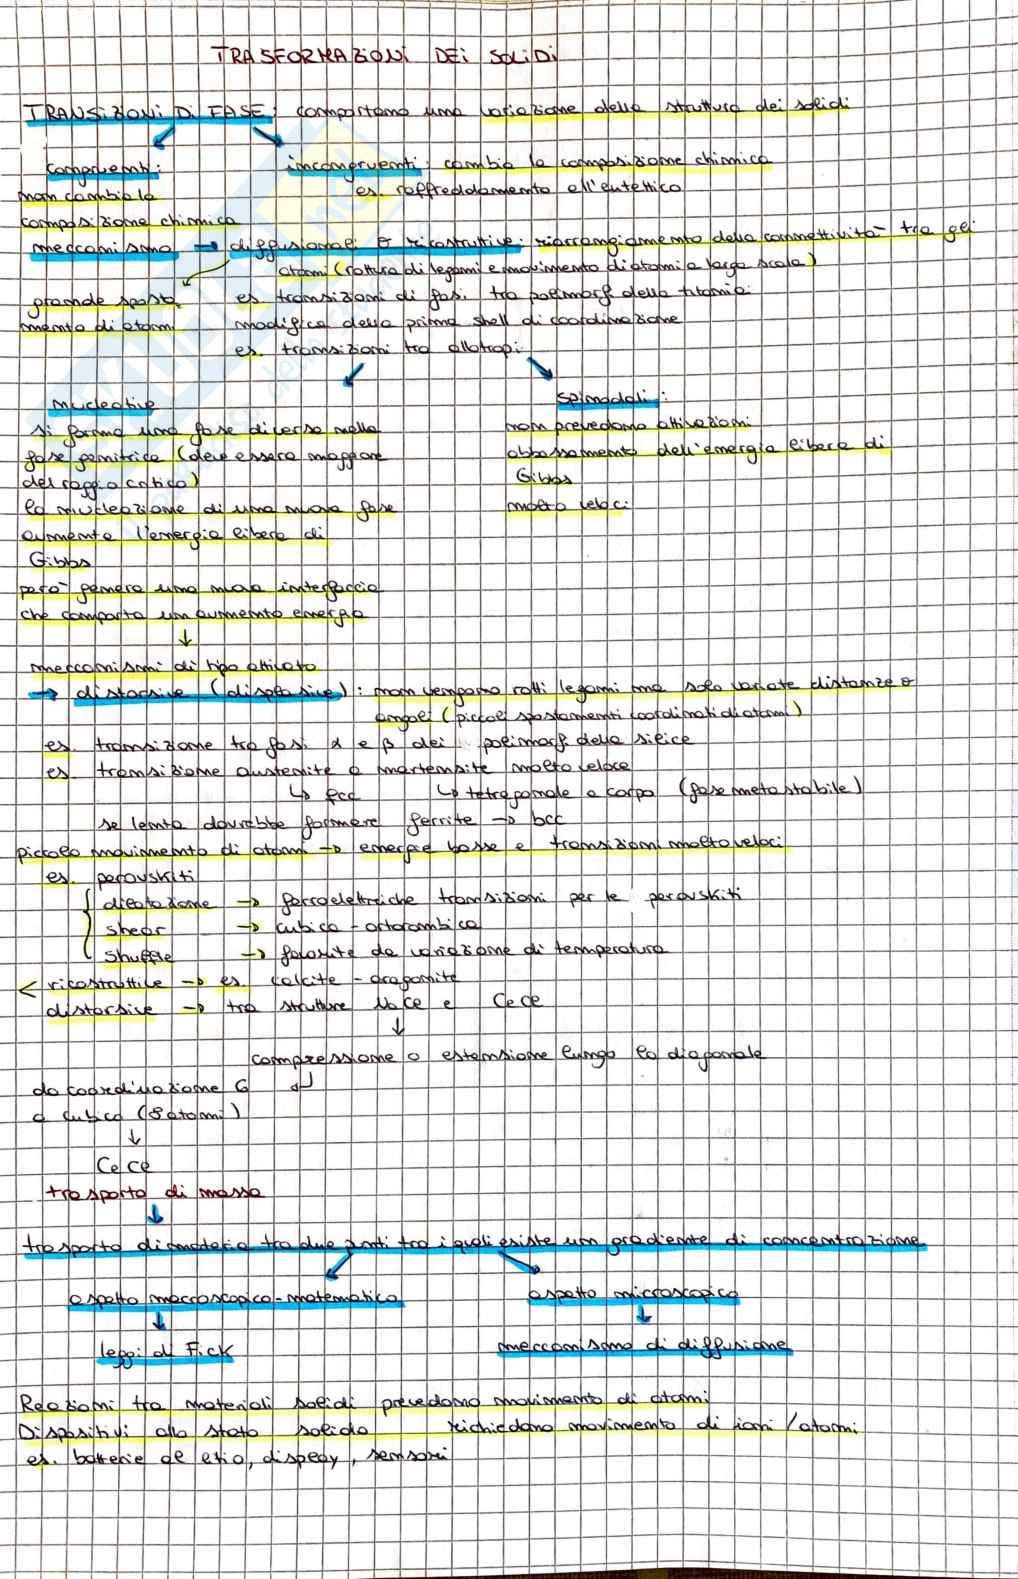 TRASFORMAZIONI DEI SOLIDI
TRANSIZIONI DI FASE: comportano una variazione della struttura dei solidi
congruenti:
non cambia la
composizione chimica
incongruenti: cambia la composizione chimica
es. raffreddamento all'eutettico
meccanismo → diffusionali o ricostruttive: riarrangiamento della connettività tra gli
atomi (rottura di legami e movimento di atomi a larga scala)
grande sposta
mento di atomi
es. transizioni di fasi tra polimorfi della titania
modifica della prima shell di coordinazione
es. transizioni tra allotropi
nucleative
si forma una fase diversa nella
fase genitrice (deve essere maggiore
del raggio critico)
la nucleazione di una nuova fase
aumenta l'energia libera di
Gibbs
però genera una nuova interfaccia
che comporta un aumento energia
↓
meccanismi di tipo attivato
spinodali:
non prevedono attivazioni
abbassamento dell'energia libera di
Gibbs
molto veloci
→ distorsive (displasive): non vengono rotti legami ma solo variate distanze o
angoli (piccoli spostamenti coordinati di atomi)
es. transizione tra fasi α e β dei polimorfi della silice
es. transizione austenite a martensite molto veloce
↳ fcc ↳ tetragonale a corpo (fase metastabile)
se lenta dovrebbe formare ferrite → bcc
piccolo movimento di atomi → energie basse e transizioni molto veloci
es. perovskiti
dilatazione → ferroelettriche transizioni per le perovskiti
shear → cubica - ortorombica
shuffle → favorite da variazione di temperatura
< ricostruttive → es. calcite - aragonite
distorsive → tra strutture NaCl e CsCl
↓
compressione o estensione lungo la diagonale
da coordinazione 6 ↲
a cubica (8 atomi)
↓
CsCl
trasporto di massa
↓
trasporto di materia tra due punti tra i quali esiste un gradiente di concentrazione
aspetto macroscopico-matematico
↓
leggi di Fick
aspetto microscopico
↓
meccanismo di diffusione
Reazioni tra materiali solidi prevedono movimento di atomi
Dispositivi allo stato solido richiedono movimento di ioni / atomi
es. batterie al litio, display, sensori